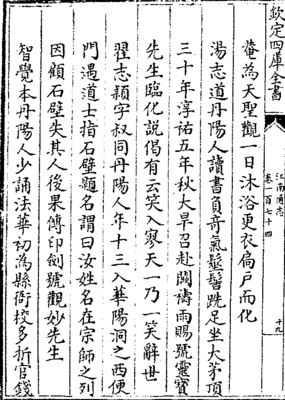 欽定四庫全書
江南通志
卷一百七十四
十九
菴為天聖觀一日沐浴更衣扃戸而化
湯志道丹陽人讀書負竒氣鬅髻跣足坐大茅頂
三十年淳祐五年秋大旱召赴闕禱雨賜號靈寶
先生臨化説偈有云笑入寒天一乃一笑辭世
翟志穎字叔同丹陽人年十三入華陽洞之西便
門遇道士指石壁題名謂曰汝姓名在宗師之列
因顧石壁失其人後果傳印劍號觀妙先生
智覺本丹陽人少誦法華初為縣衙校多折官錢